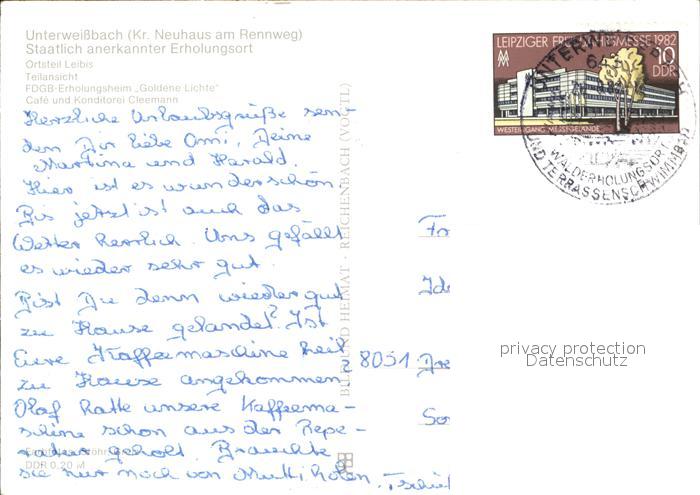 Unterweißbach (Kr. Neuhaus am Rennweg)
Staatlich anerkannter Erholungsort
Ortsteil Leibis
Teilansicht
FDGB-Erholungsheim „Goldene Lichte"
Café und Konditorei Cleemann
Herzliche Urlaubsgrüße sen-
den Dir liebe Omi, Deine
Martina und Harald.
Hier ist es wunderschön.
Bis jetzt ist auch das
Wetter herrlich. Uns gefällt
es wieder sehr gut.
Bist Du denn wieder gut
zu Hause gelandet? Ist
Eure Kaffeemaschine heil
zu Hause angekommen?
Olaf hatte unsere Kaffeema-
schine schon aus der Repe-
ratur geholt. Brauchte
sie nur noch von Mutti holen. Tschüß
DDR 0,20 M
BILD UND HEIMAT · REICHENBACH (VOGTL)
LEIPZIGER FRÜHJAHRSMESSE 1982
10
DDR
WESTEINGANG MESSEGELÄNDE
UNTERWEISSBACH
WALDERHOLUNGSORT
UND TERRASSENSCHWIMMBAD
Fr
Ide
8051 Dre
So
privacy protection
Datenschutz